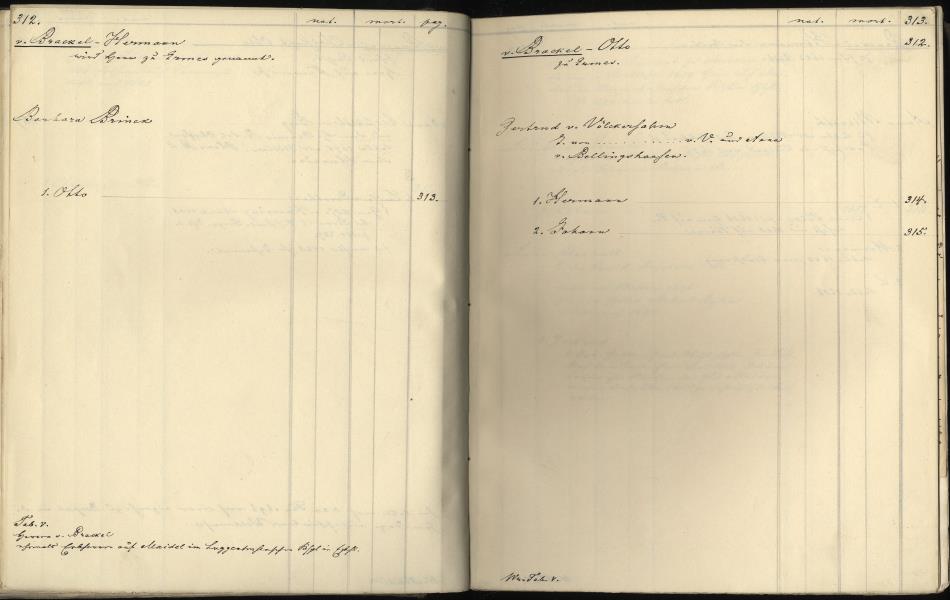 312.
nat. mort. pag.
v. Brackel - Hermann
wird Herr zu Ermes genannt.
Barbara Brinck
1. Otto 313.
Tab. V.
Herren v. Brackel
auf Maidel im Luggenhusenschen Kspl in Estl.
nat. mort. 313.
v. Brackel - Otto 312.
zu Ermes.
Gertrud v. Völckersahm
T. von . . . . . . . . . . v. V. und Anna
v. Bellingshausen.
1. Hermann 314.
2. Johann 315.
Tab. V.